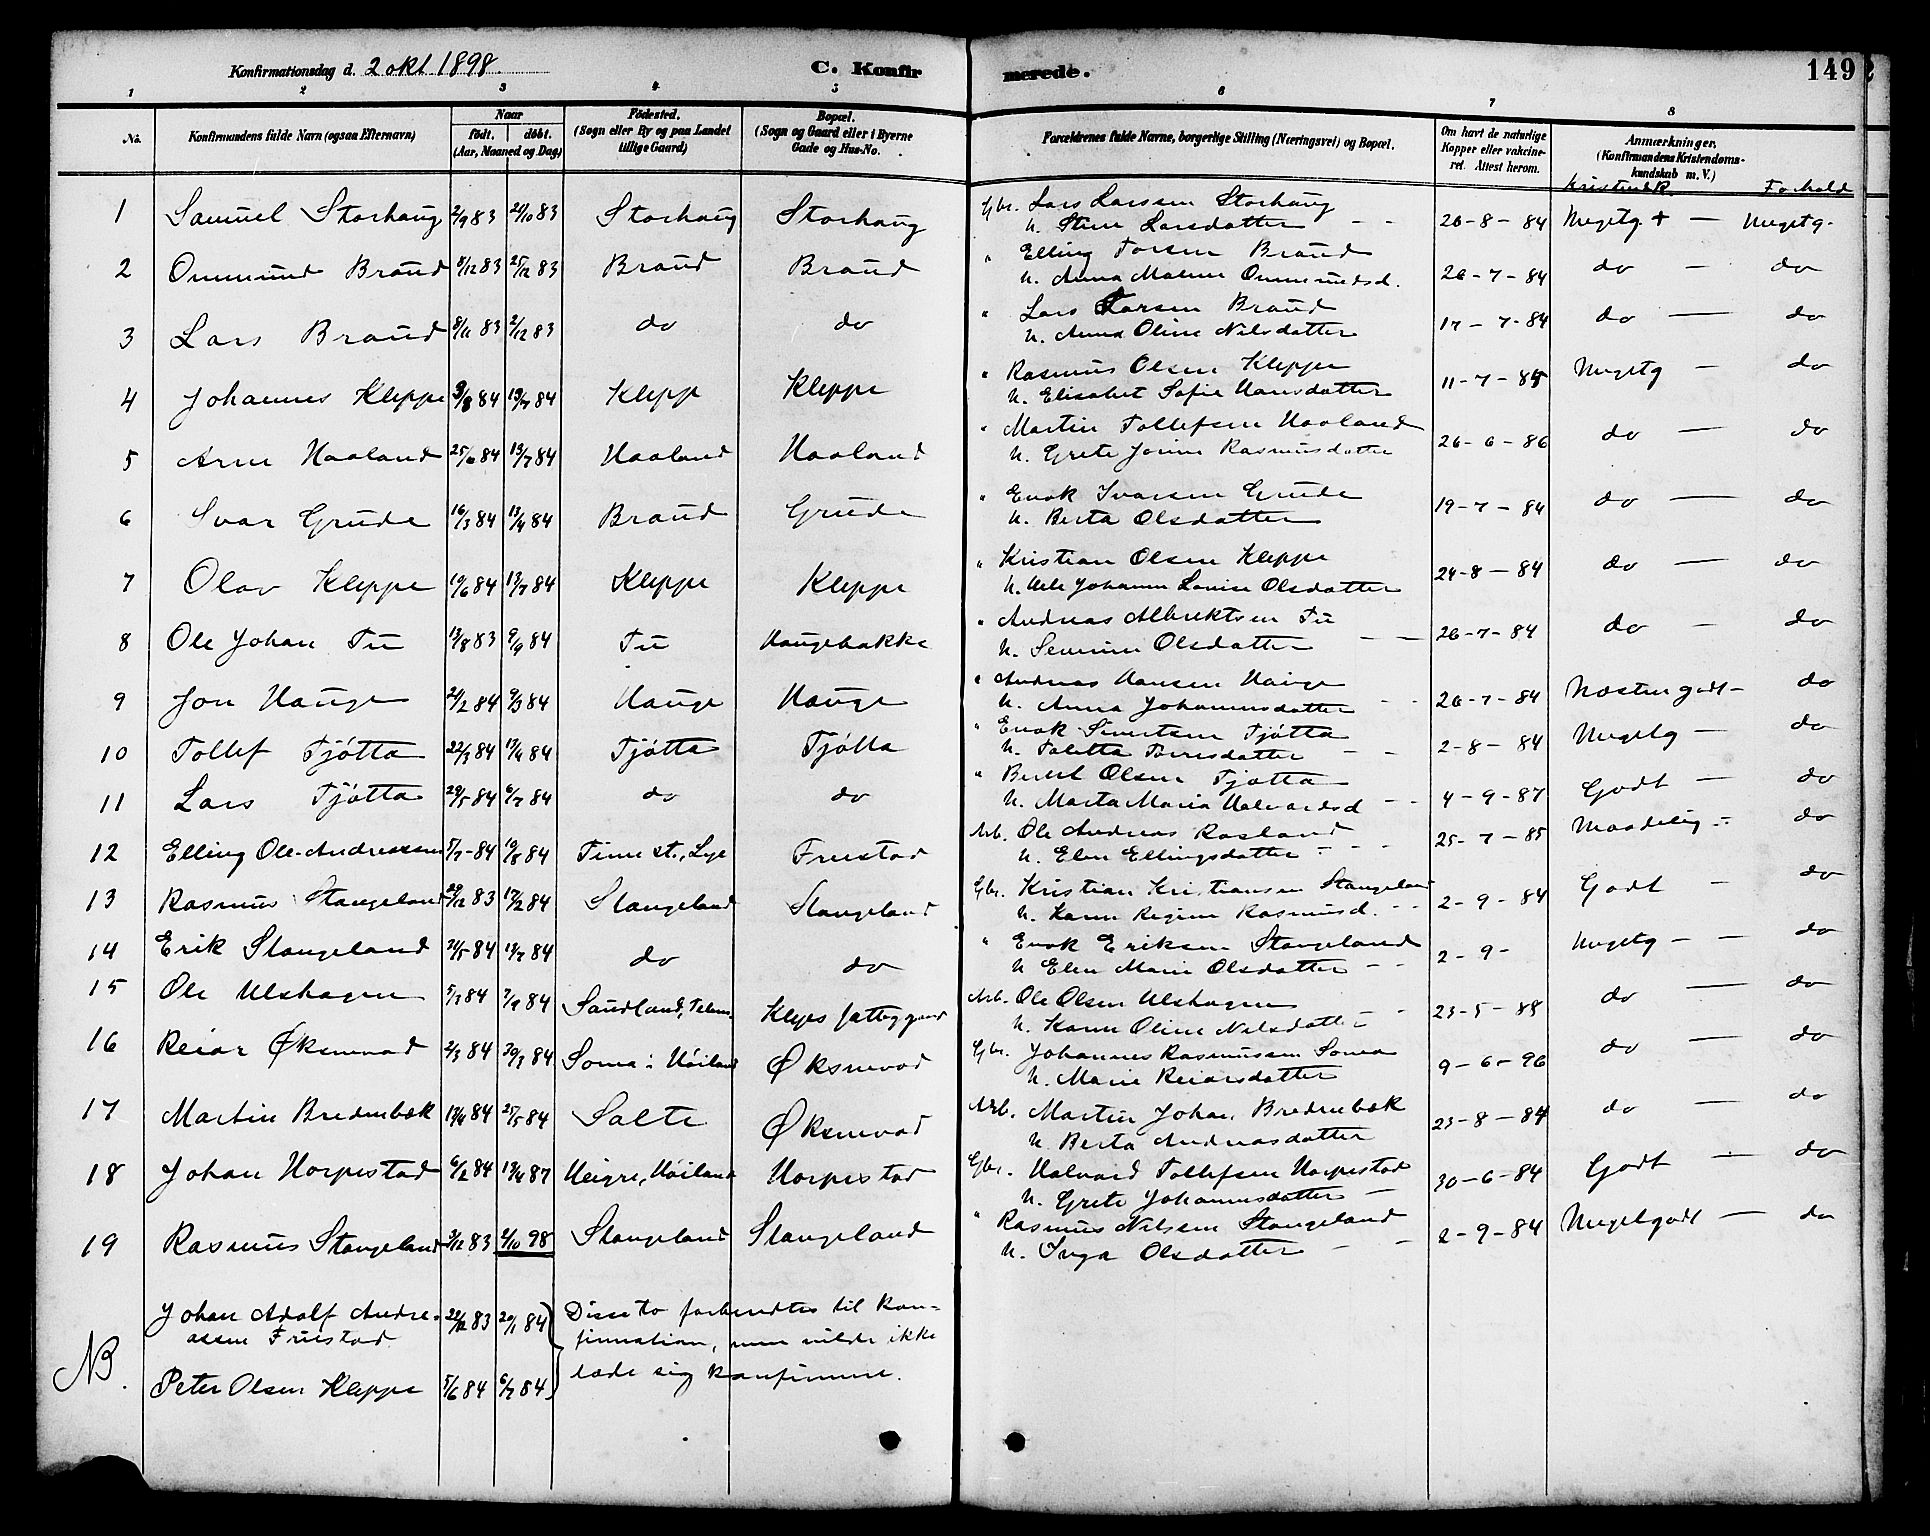 Konfirmationsdag d. 2 okt 1898. C. Konfirmerede. 149
1 2 3 4 5 6 7 8
No. Konfirmandens fulde Navn (ogsaa Efternavn) Naar født. døbt. (Aar, Maaned og Dag) Fødested. (Sogn eller By og paa Landet tillige Gaard) Bopæl. (Sogn og Gaard eller i Byerne Gade og Hus-No. Forældrenes fulde Navne, borgerlige Stilling (Næringsvei) og Bopæl. Om havt de naturlige Kopper eller vakcineret. Attest herom. Anmærkninger. (Konfirmandens Kristendomskundskab m. V.)
Kristendk. Forhold
1 Samuel Storhaug 2/9 83 21/10 83 Storhaug Storhaug Gbr. Lars Larsen Storhaug 26-8-84 Megetg + — Megetg.
h. Stine Larsdatter
2 Ommund Braud 8/12 83 25/12 83 Braud Braud " Elling Torsen Braud 26-7-84 do — do
h. Anna Malene Ommundsd.
3 Lars Braud 8/11 83 2/12 83 do do " Lars Larsen Braud 17-7-84 do — do
h. Anna Oline Nilsdatter
4 Johannes Kleppe 3/8 84 13/7 84 Klepp Kleppe " Rasmus Olsen Kleppe 11-7-85 Megetg — do
h. Elisabet Sofie Hansdatter
5 Arne Haaland 25/6 84 13/7 84 Haaland Haaland " Martin Tollefsen Haaland 26-6-86 do — do
h. Grete Jorine Rasmusdatter
6 Ivar Grude 16/3 84 13/4 84 Braud Grude " Enok Ivarsen Grude 19-7-84 do — do
h. Berta Olsdatter
7 Olav Kleppe 19/6 84 13/7 84 Kleppe Kleppe " Kristian Olsen Kleppe 24-8-84 do — do
h. Johanne Lovise Olsdatter
8 Ole Johan Tu 13/8 83 9/9 84 Tu Haugebakke " Andreas Albrektsen Tu 26-7-84 do — do
h. Severine Olsdatter
9 Jon Hauge 21/2 84 9/3 84 Hauge Hauge " Andreas Hansen Hauge 26-7-84 Næsten godt — do
h. Anna Johannesdatter
10 Tollef Tjøtta 22/3 84 14/4 84 Tjøtta Tjøtta " Enok Sivertsen Tjøtta 2-8-84 Megetg — do
h. Toletta Torresdatter
11 Lars Tjøtta 29/5 84 6/7 84 do do " Berent Olsen Tjøtta 4-9-87 Godt — do
h. Marta Maria Halvardsd
12 Elling Ole Andreassen 5/7-84 10/8 84 Time st., Lye Fruestad Arb. Ole Andreas Rosland 25-7-85 Maadelig — do
h. Elen Ellingsdatter
13 Rasmus Stangeland 29/12 83 17/2 84 Stangeland Stangeland Gbr. Kristian Kristiansen Stangeland 2-9-84 Godt — do
h. Karen Regine Rasmusd.
14 Erik Stangeland 31/5 84 13/7 84 do do " Enok Eriksen Stangeland 2-9- Megetg — do
h Elen Marie Olsdatter
15 Ole Ulshagen 5/3 84 7/9 84 Saudland, Telem. Kleps fattiggaard Arb. Ole Olsen Ulshagen 23-5-88 do — do
h. Karen Oline Nilsdatter
16 Reiar Øksnevad 2/3 84 30/3 84 Soma i Høiland Øksnevad Gbr. Johannes Rasmussen Soma 9-6-96 do — do
h. Marie Reiarsdatter
17 Martin Bredenbæk 13/4 84 25/5 84 Salte Øksnevad Arb. Martin Johan Bredenbæk 23-8-84 do — do
h Berta Andreasdatter
18 Johan Horpestad 6/2 84 13/4 87 Heigre, Høiland Horpestad Gbr. Halvard Tollefsen Horpestad 30-6-84 Godt — do
h. Grete Johannesdatter
19 Rasmus Stangeland 3/12 83 2/10 98 Stangeland Stangeland " Rasmus Nilsen Stangeland 2-9-84 Megetgodt — do
h. Inga Olsdatter
NB. Johan Adolf Andre- 22/12 83 20/1 84 } Disse to forberedtes til kon-
assen Fruestad firmation, men vilde ikke
Peter Olsen Kleppe 5/6 84 6/7 84 lade sig konfirmere.